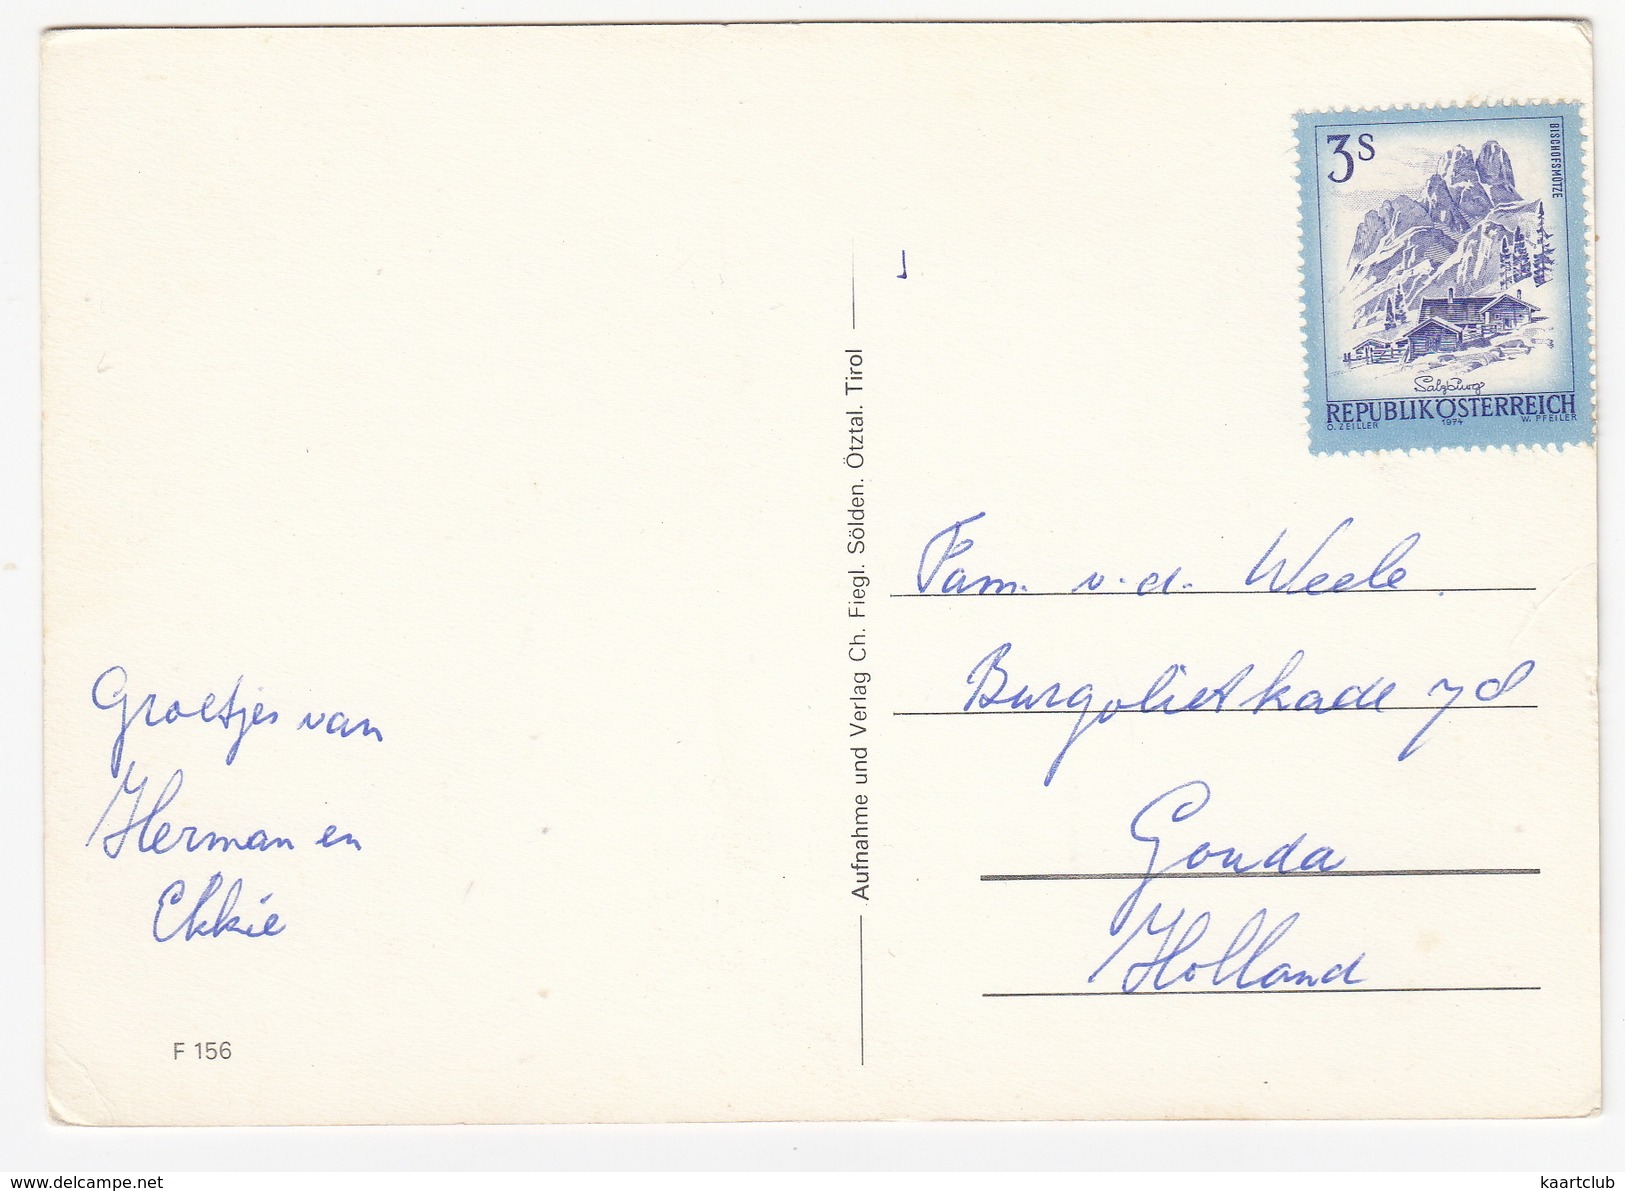 Groetjes van
Herman en
Ekkie
F 156
Aufnahme und Verlag Ch. Fiegl. Sölden. Ötztal. Tirol
3S
BISCHOFSMÜTZE
Salzburg
REPUBLIK ÖSTERREICH
O. ZEILLER 1974 W. PFEILER
Fam. v.d. Weele.
Burgvlietkade 78
Gouda
Holland
delcampe.net
kaartclub